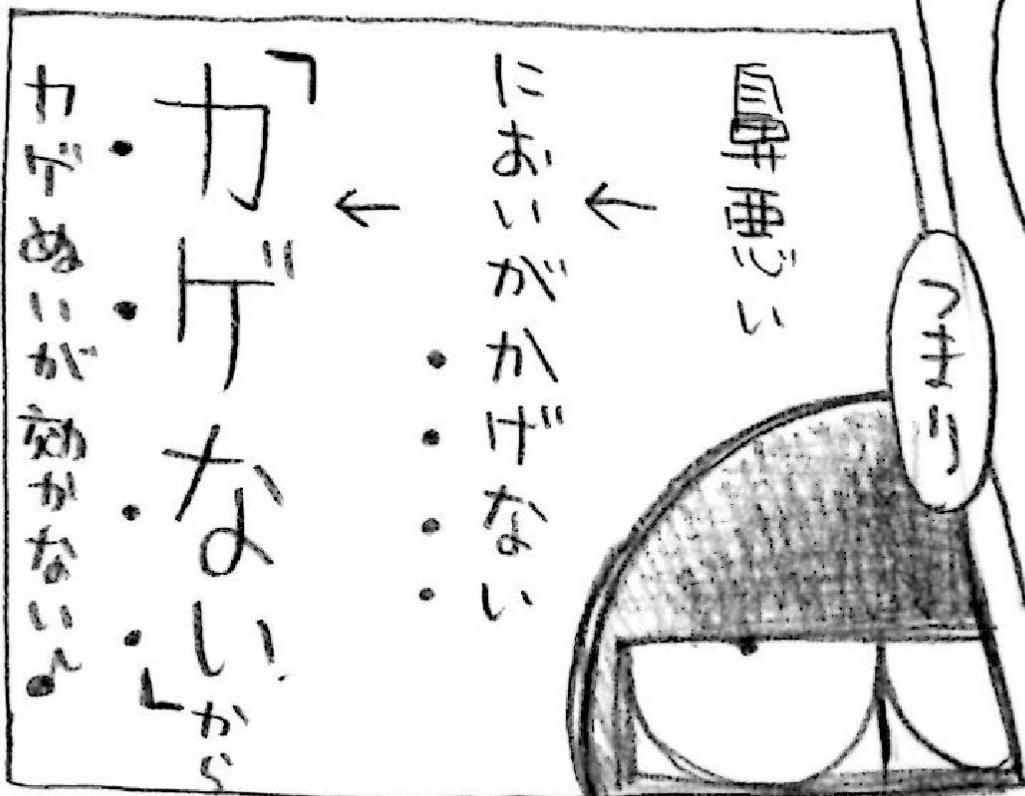 つまり
鼻悪い
↓
においがかげない
↓
「カゲない!」から
カゲぬいが効かない♪